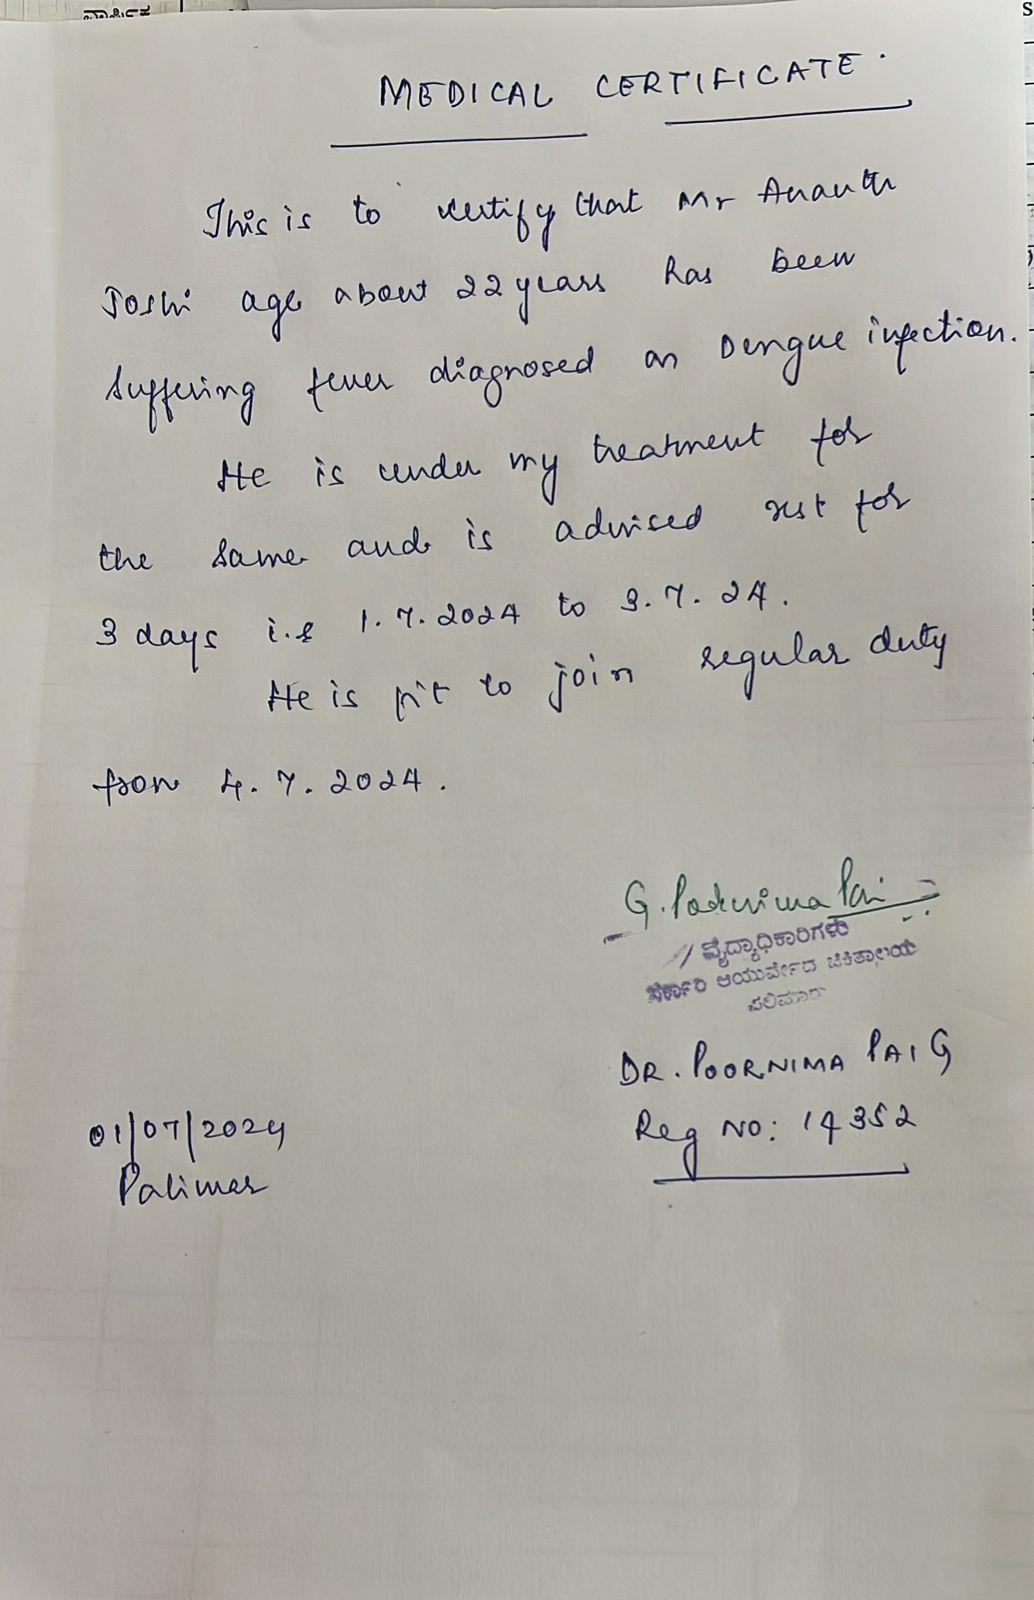 MEDICAL CERTIFICATE.
This is to certify that Mr Ananth
Joshi age about 22 years has been
suffering fever diagnosed as Dengue infection.
He is under my treatment for
the same and is advised rest for
3 days i.e 1.7.2024 to 3.7.24.
He is fit to join regular duty
from 4.7.2024.
G. Poornima Pai
ವೈದ್ಯಾಧಿಕಾರಿಗಳು
ಸರ್ಕಾರಿ ಆಯುರ್ವೇದ ಚಿಕಿತ್ಸಾಲಯ
ಪಲಿಮಾರು
DR. POORNIMA PAI G
Reg NO: 14352
01/07/2024
Palimar